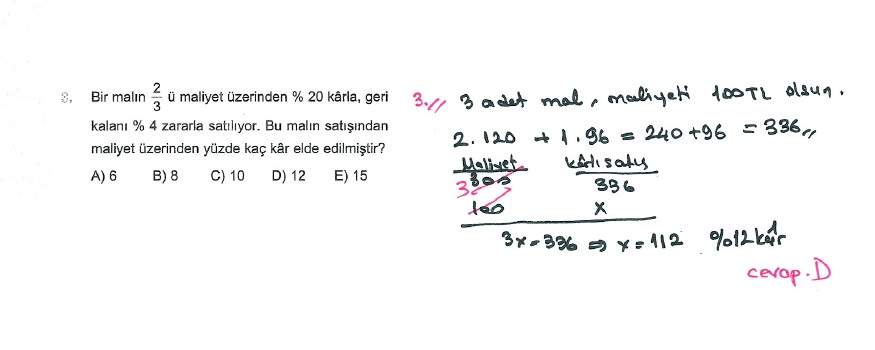 3. Bir malın 2/3 ü maliyet üzerinden % 20 kârla, geri
kalanı % 4 zararla satılıyor. Bu malın satışından
maliyet üzerinden yüzde kaç kâr elde edilmiştir?
A) 6 B) 8 C) 10 D) 12 E) 15
3.// 3 adet mal, maliyeti 100TL olsun.
2.120 + 1.96 = 240+96 = 336//
Maliyet kârlı satış
3 300 336
100 x
3x = 336 ⇒ x = 112 %12 kâr
cevap. D